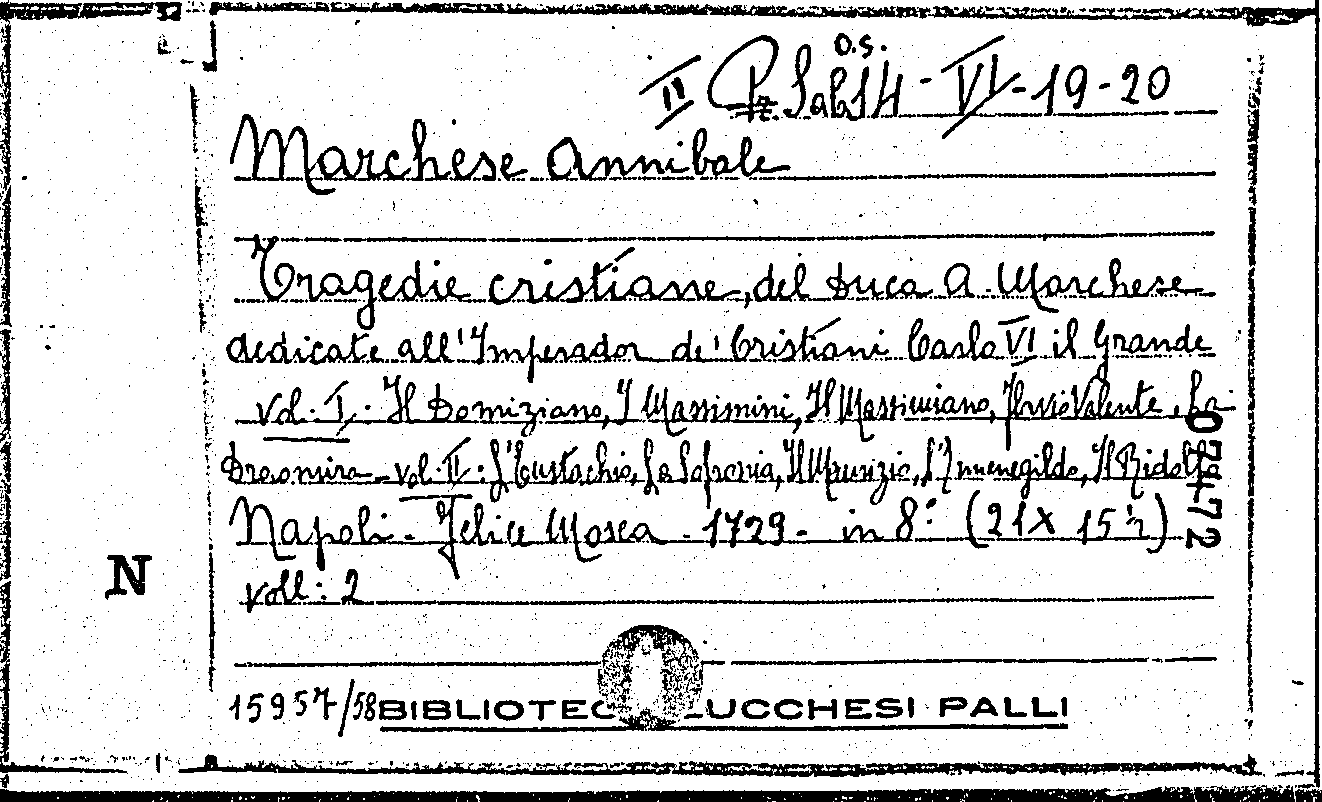 O.S.
II Pz. Sal 14 - VI - 19 - 20
Marchese Annibale
Tragedie cristiane, del Duca A. Marchese
dedicate all'Imperador de' Cristiani Carlo VI il Grande
vol. I: Il Domiziano, I Massimini, Il Massimiano, Flavio Valente, La
Draomira - vol. II: L'Eustachio, La Sofronia, Il Maurizio, L'Ermenegildo, Il Ridolfo
Napoli - Felice Mosca - 1729 - in 8° (21 x 15 ½)
voll: 2
07472
N
15957/58 BIBLIOTEC LUCCHESI PALLI